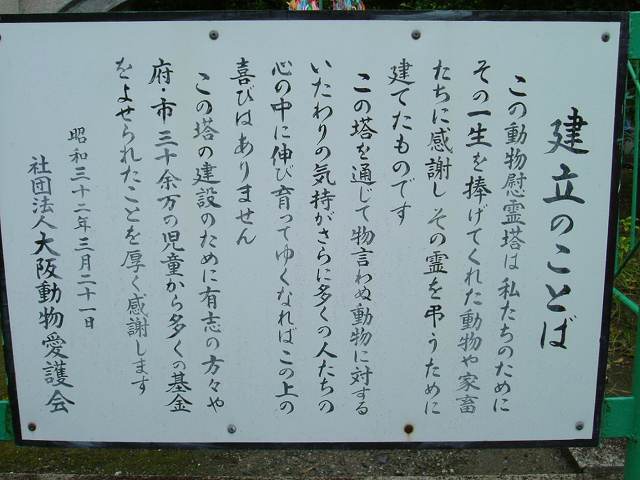 建立のことば
この動物慰霊塔は 私たちのために
その一生を捧げてくれた動物や家畜
たちに感謝し その霊を弔うために
建てたものです
この塔を通じて物言わぬ動物に対する
いたわりの気持がさらに多くの人たちの
心の中に伸び育ってゆくなればこの上の
喜びはありません
この塔の建設のために有志の方々や
府・市三十余万の児童から多くの基金
をよせられたことを厚く感謝します
昭和三十二年三月二十一日
社団法人大阪動物愛護会